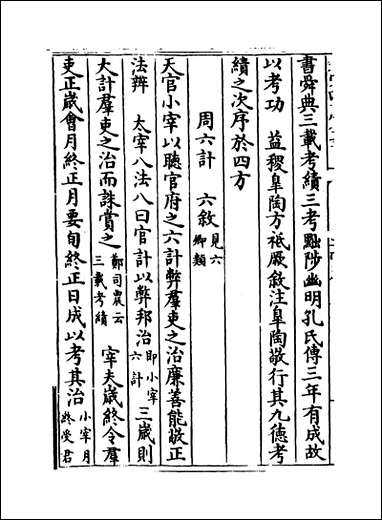 書舜典三載考績三考黜陟幽明孔氏傳三年有成故
以考功　益稷皐陶方祗厥敘注皐陶敬行其九德考
績之次序於四方
周六計　六敘見六卿類
天官小宰以聽官府之六計弊羣吏之治廉善能敬正
法辨　太宰八法八曰官計以弊邦治即小宰六計三歲則
大計羣吏之治而誅賞之鄭司農云三載考績　宰夫歲終令羣
吏正歲會月終正月要旬終正日成以考其治小宰月終受君